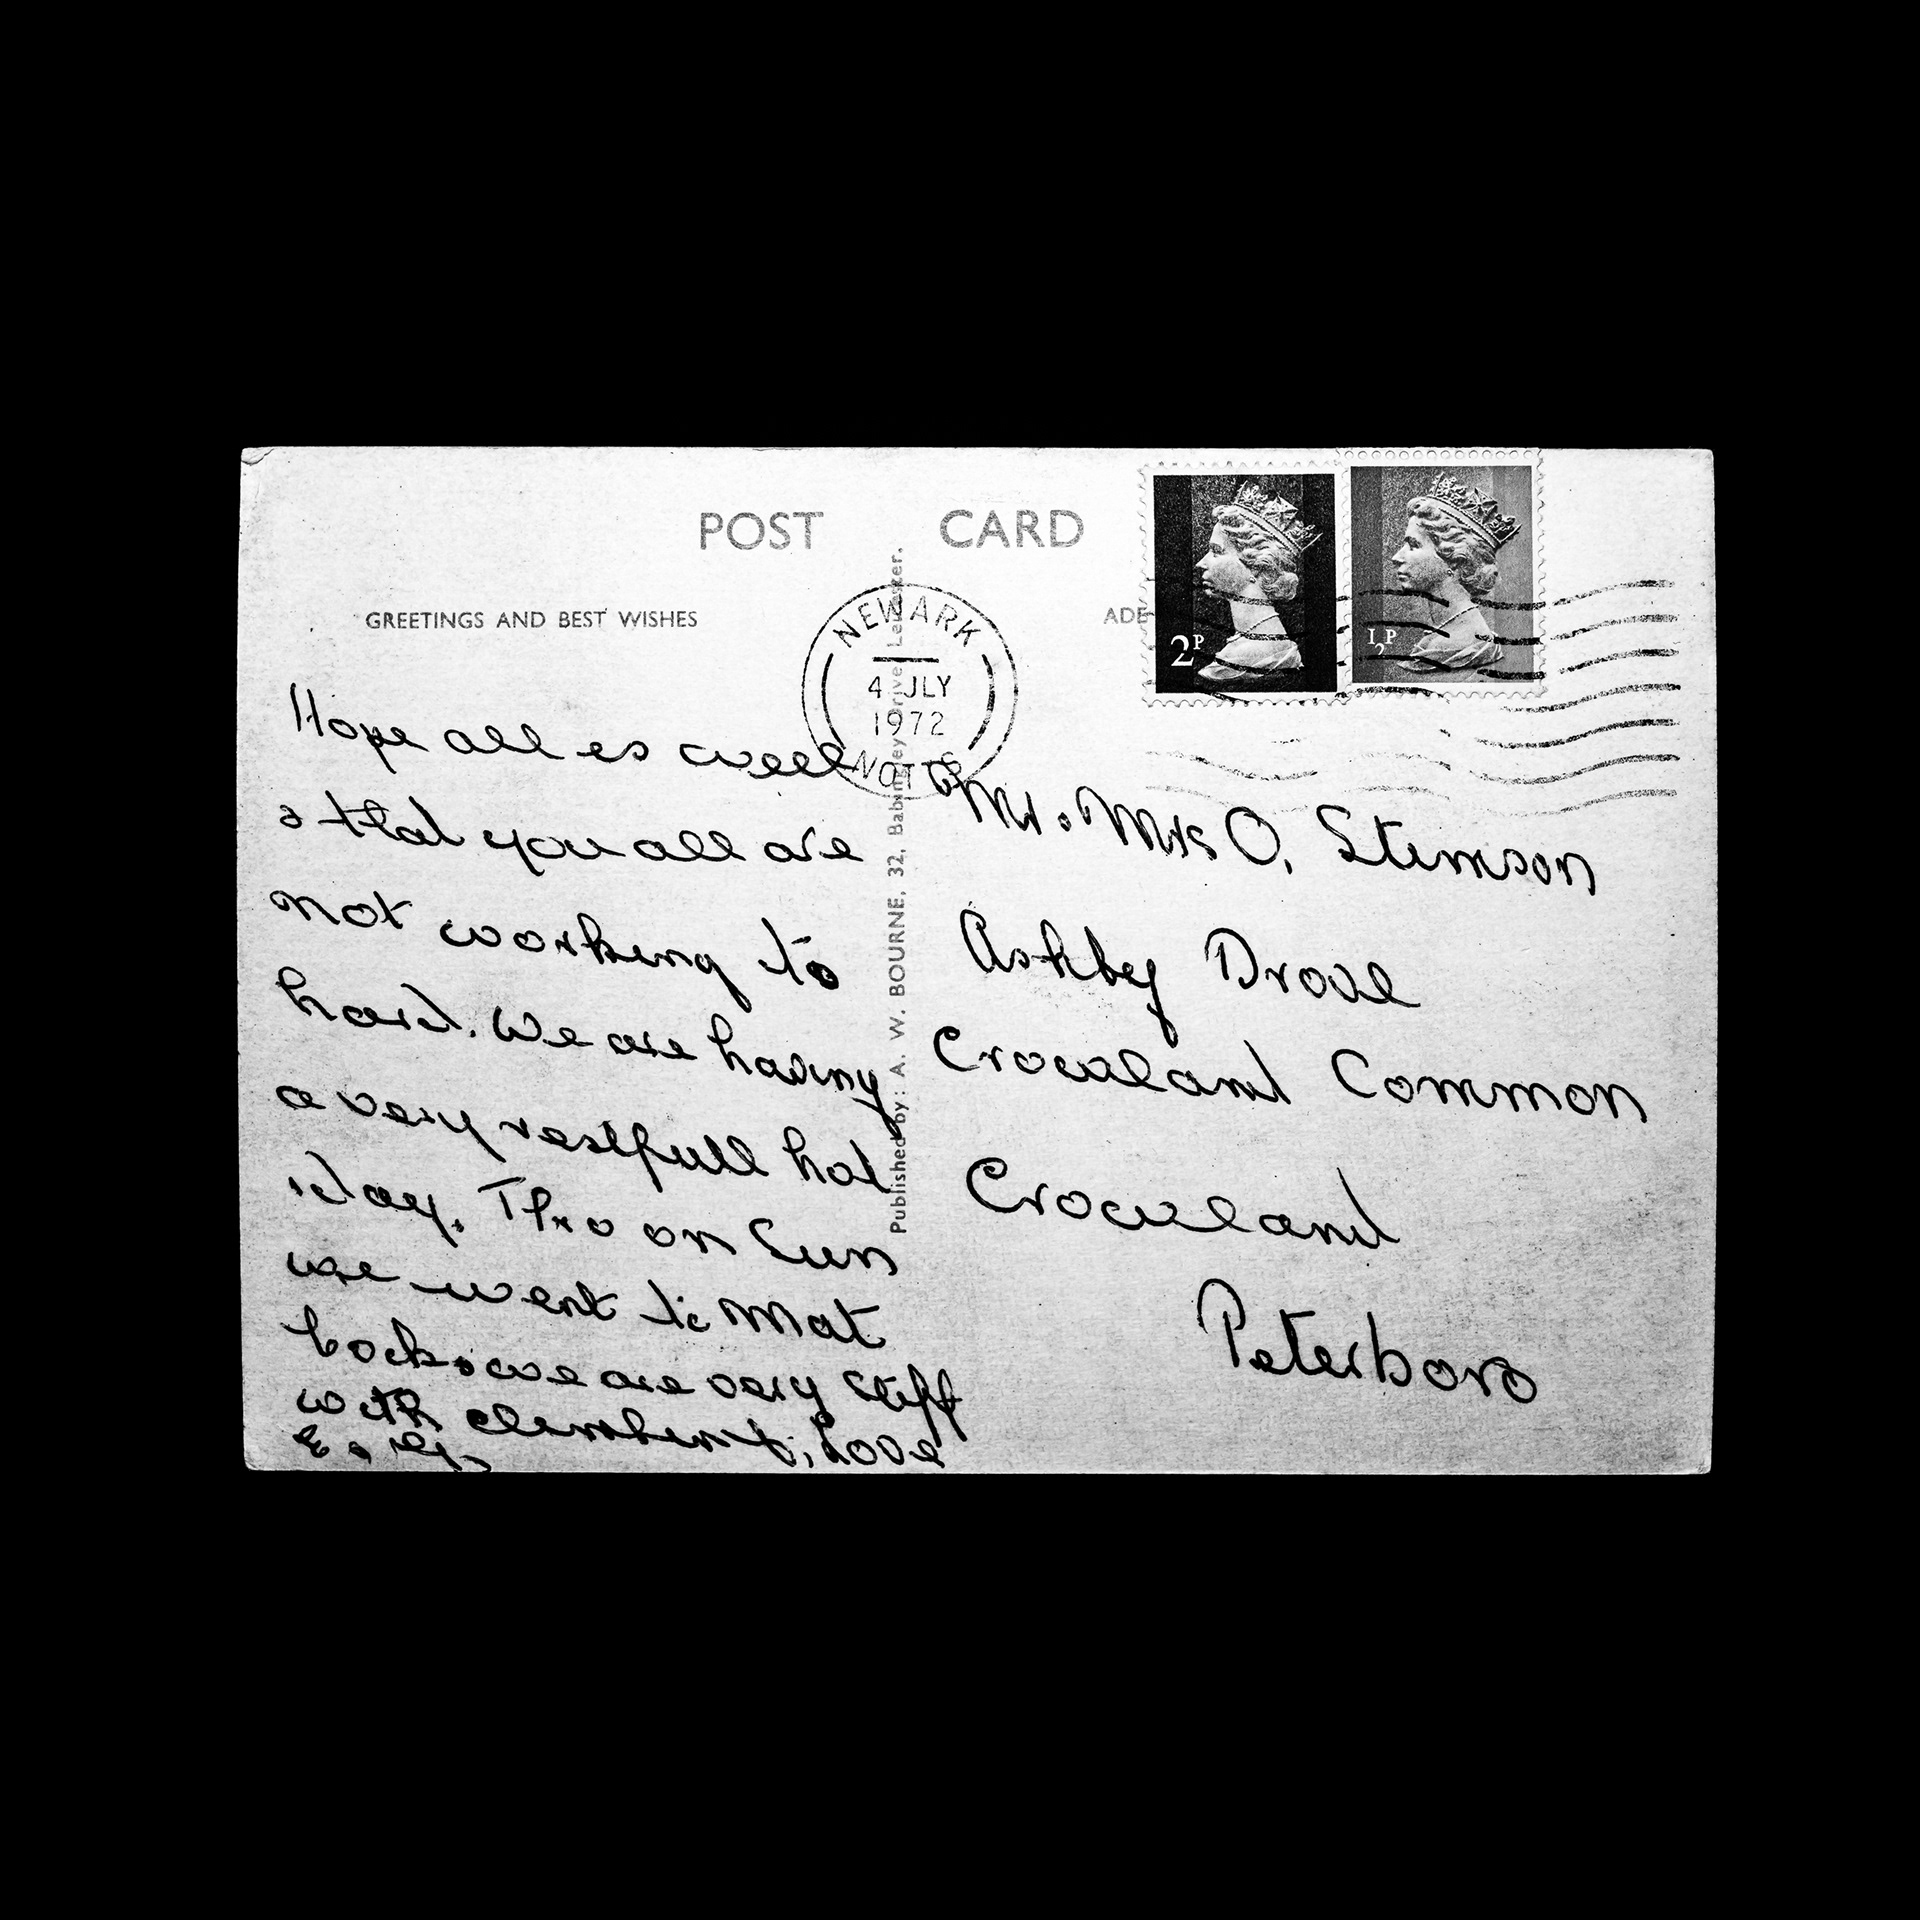 POST CARD
GREETINGS AND BEST WISHES
NEWARK
4 JLY
1972
NOTTS
2P
½P
Hope all is well
& that you all are
not working to
hard. We are having
a very restfull hol
iday. Tho on Sun
we went to Mat
lock, we are very stiff
with climbing. Love
Published by: A. W. BOURNE, 32, Babingley Drive, Leicester.
Mr. Mrs O. Stimson
Ashby Drove
Crowland Common
Crowland
Peterboro